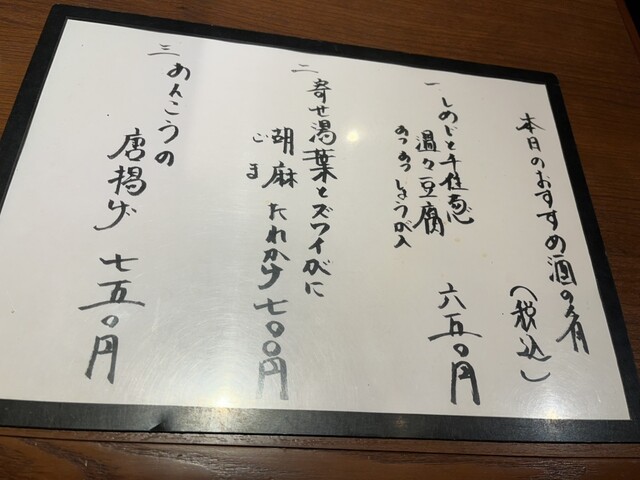 本日のおすすめ酒の肴
（税込）
一 しめじと千住葱
温々豆腐
あつあつ しょうが入
六五〇円
二 寄せ湯葉とズワイがに
胡麻たれかけ 七〇〇円
ごま
三 あんこうの
唐揚げ 七五〇円